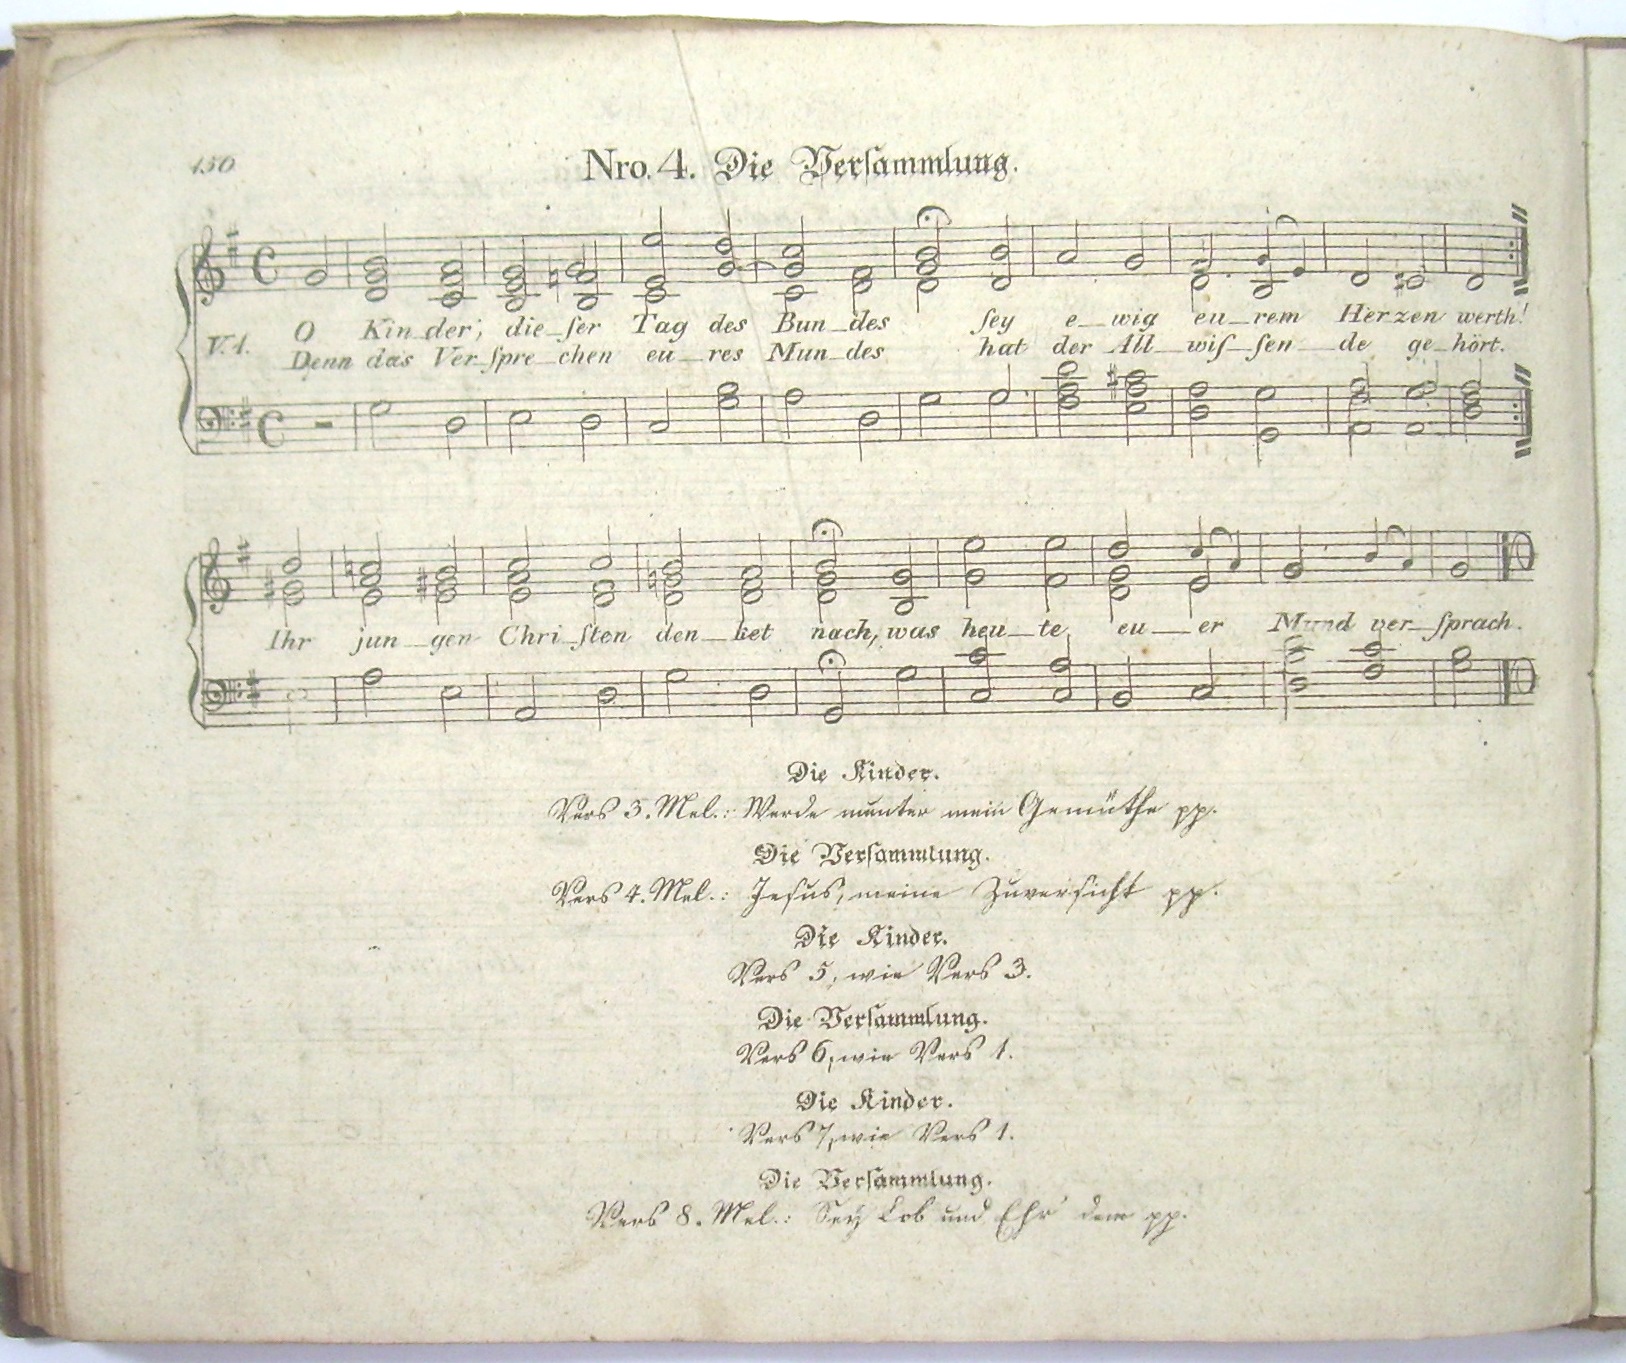 150
Nro. 4. Die Verſammlung.
V.1.
O Kin_der, die_ſer Tag des Bun_des ſey e_wig eu_rem Herzen werth!
Denn das Ver_ſpre_chen eu_res Mun_des hat der All_wiſ_ſen_de ge_hört.
Ihr jun_gen Chri_ſten den_ket nach, was heu_te eu_er Mund ver_ſprach.
Die Kinder.
Vers 3. Mel.: Werde munter mein Gemüthe pp.
Die Verſammlung.
Vers 4. Mel.: Jeſus, meine Zuverſicht pp.
Die Kinder.
Vers 5, wie Vers 3.
Die Verſammlung.
Vers 6, wie Vers 1.
Die Kinder.
Vers 7, wie Vers 1.
Die Verſammlung.
Vers 8. Mel.: Sey Lob und Ehr' dem pp.